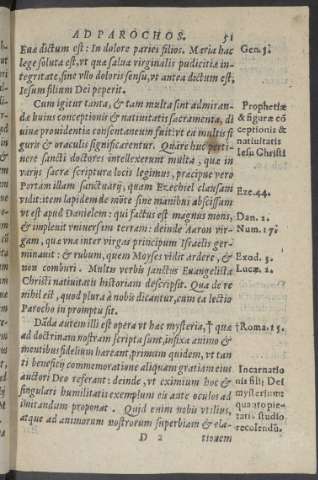 AD PAROCHOS. 51
Euæ dictum est: In dolore paries filios. Maria hac
lege soluta est, vt quæ salua virginalis pudicitiæ in-
tegritate, sine vllo doloris sensu, vt antea dictum est,
Iesum filium Dei peperit.
Cum igitur tanta, & tam multa sint admiran-
dæ huius conceptionis & natiuitatis sacramenta, di
uinæ prouidentiæ consentaneum fuit: vt ea multis fi
guris & oraculis significarentur. Quare huc perti-
nere sancti doctores intellexerunt multa, quæ in
varijs sacræ scripturæ locis legimus, præcipue vero
Portam illam sanctuarij, quam Ezechiel clausam
vidit: item lapidem de mōte sine manibus abscissum
vt est apud Danielem: qui factus est magnus mons,
& impleuit vniuersam terram: deinde Aaron vir-
gam, quæ vna inter virgas principum Israelis ger-
minauit: & rubum, quem Moyses vidit ardere, &
non comburi. Multis verbis sanctus Euangelista
Christi natiuitatis historiam descripsit. Qua de re
nihil est, quod plura à nobis dicantur, cum ea lectio
Parocho in promptu sit.
Dāda autem illi est opera vt hæc mysteria, † quæ
ad doctrinam nostram scripta sunt, infixa animo &
mentibus fidelium hæreant, primum quidem, vt tan
ti beneficij commemoratione aliquam gratiam eius
auctori Deo referant: deinde, vt eximium hoc &
singulare humilitatis exemplum eis ante oculos ad
imitandum proponat. Quid enim nobis vtilius,
atque ad animorum nostrorum superbiam & ela-
D 2 tionem
Gen. 3.
Prophetiæ
& figuræ cō
ceptionis &
natiuitatis
Iesu Christi
Eze. 44.
Dan. 2.
Num. 17.
Exod. 3.
Lucæ. 2.
† Roma. 15.
Incarnatio
nis filij Dei
mysterium
quanto pie-
tatis studio
recolendū.